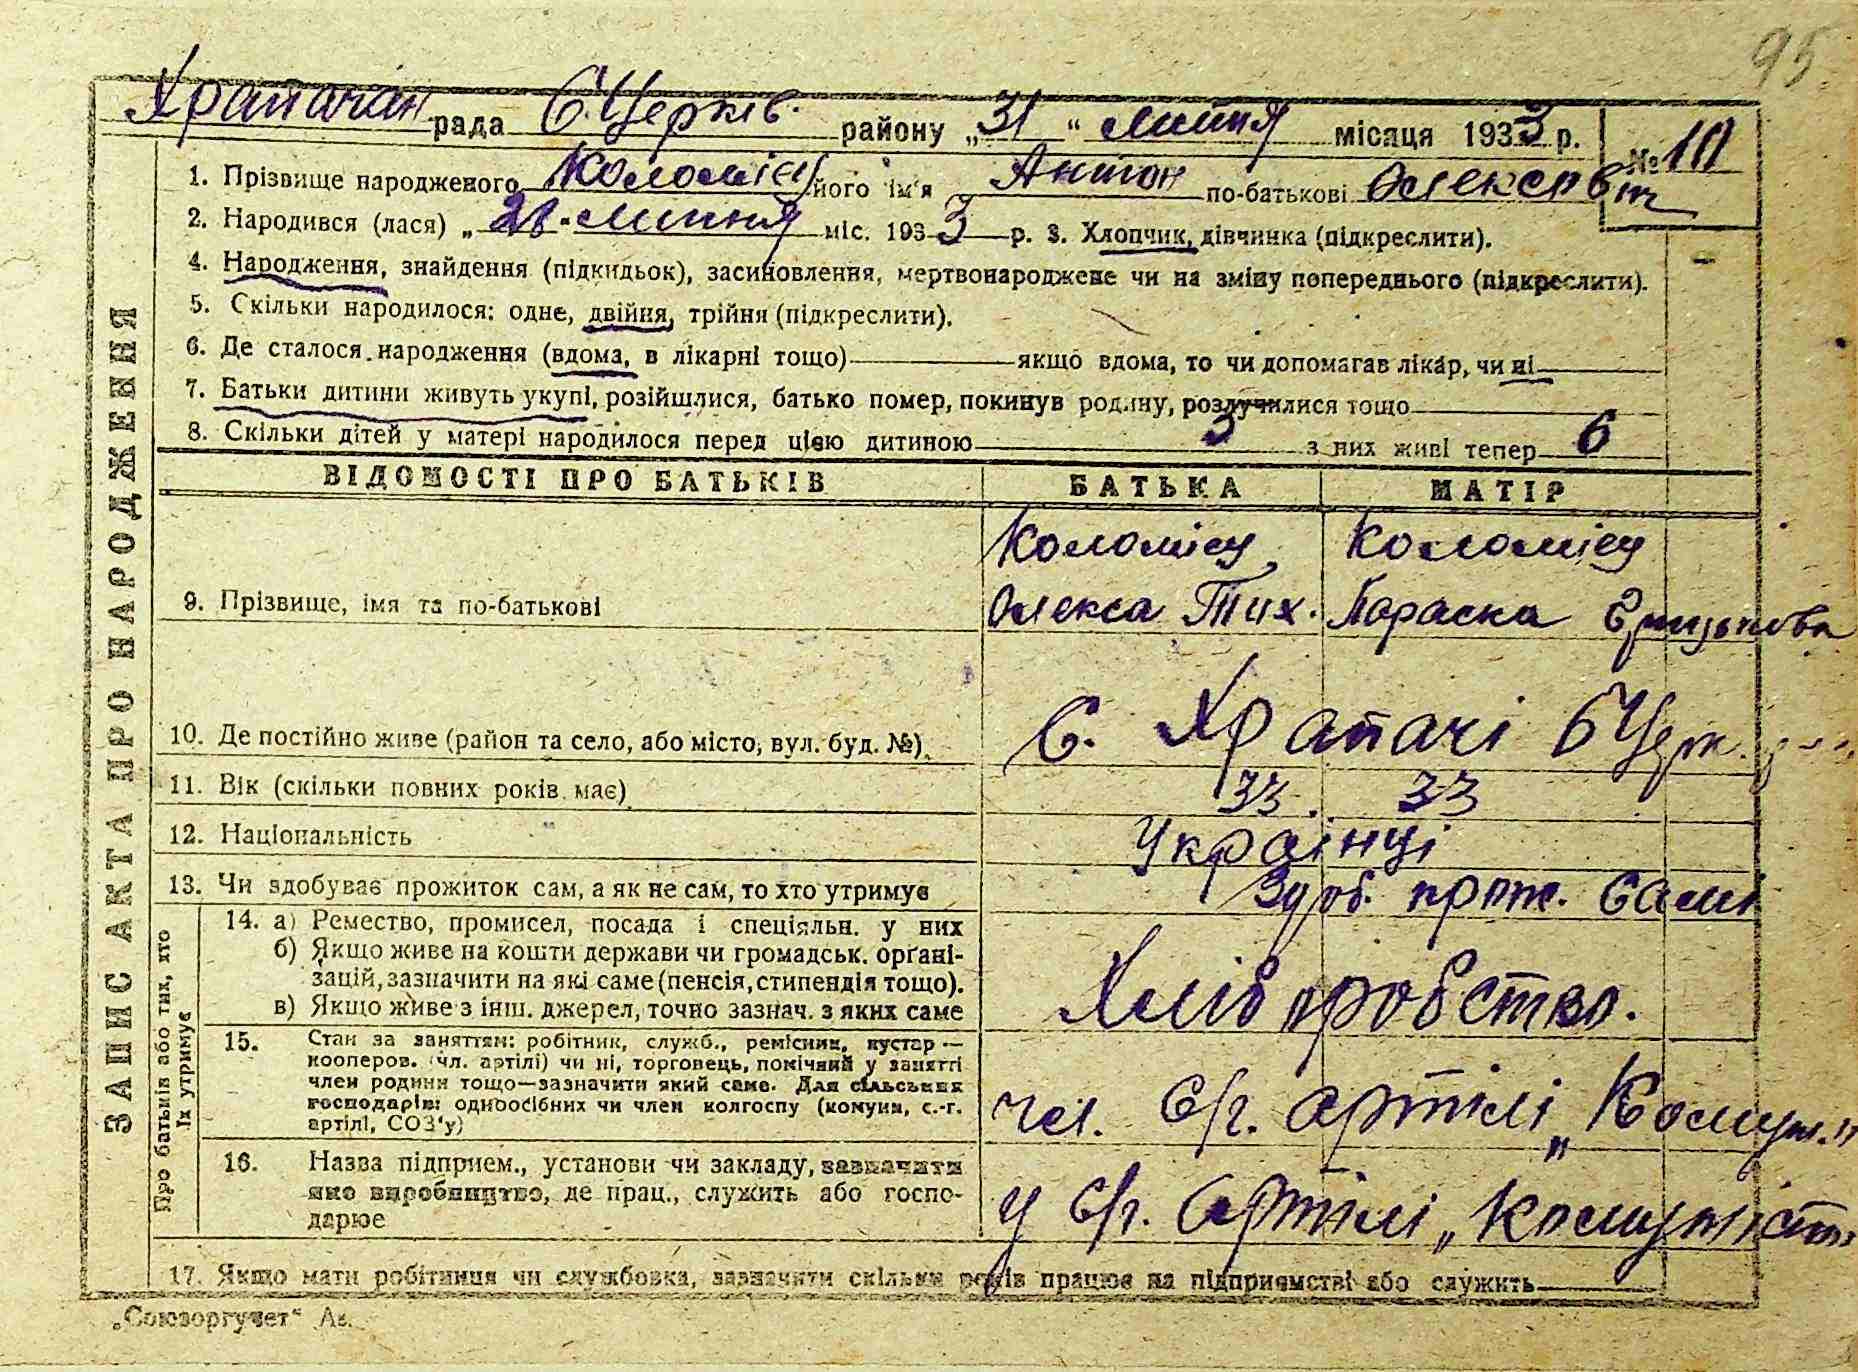 95
Храпачан рада Б.Церків. району „31“ липня місяця 1933 р.
№ 10
1. Прізвище народженого Коломієц його ім'я Антон по-батькові Олексов
2. Народився (лася) „28“ липня міс. 1933 р. 3. Хлопчик, дівчинка (підкреслити).
4. Народження, знайдення (підкидьок), засиновлення, мертвонароджене чи на зміну попереднього (підкреслити).
5. Скільки народилося: одне, двійня, трійня (підкреслити).
6. Де сталося народження (вдома, в лікарні тощо) якщо вдома, то чи допомагав лікар, чи ні
7. Батьки дитини живуть укупі, розійшлися, батько помер, покинув родину, розлучилися тощо
8. Скільки дітей у матері народилося перед цією дитиною з них живі тепер 6
ВІДОМОСТІ ПРО БАТЬКІВ БАТЬКА МАТІР
9. Прізвище, імя та по-батькові
Коломієц Олекса Тих.
Коломієц Параска
10. Де постійно живе (район та село, або місто, вул. буд. №)
С. Храпачі БЦерк.
11. Вік (скільки повних років має) 33 33
12. Національність Українці
13. Чи здобуває прожиток сам, а як не сам, то хто утримує Здоб. прож. Самі
Про батьків або тих, хто їх утримує
14. а) Ремество, промисел, посада і спеціяльн. у них
б) Якщо живе на кошти держави чи громадськ. орґані-
зацій, зазначити на які саме (пенсія, стипендія тощо).
в) Якщо живе з інш. джерел, точно зазнач. з яких саме
Хліборобство.
15. Стан за заняттям: робітник, служб., ремісник, кустар —
кооперов. (чл. артілі) чи ні, торговець, помічний у занятті
член родини тощо—зазначити який саме. Для сільських
господарів: одноосібних чи член колгоспу (комуни, с.-г.
артілі, СОЗ'у)
чл. с/г. артілі „Комун."
16. Назва підприєм., установи чи закладу, зазначити
яке виробництво, де прац., служить або госпо-
дарює
у с/г. артілі „Комуніст"
17. Якщо мати робітниця чи службовка, зазначити скільки років працює на підприємстві або служить
ЗАПИС АКТА ПРО НАРОДЖЕННЯ
„Союзоргучет“